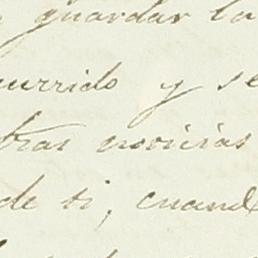 guardar la
currido y se
tras novicias
de si, cuand